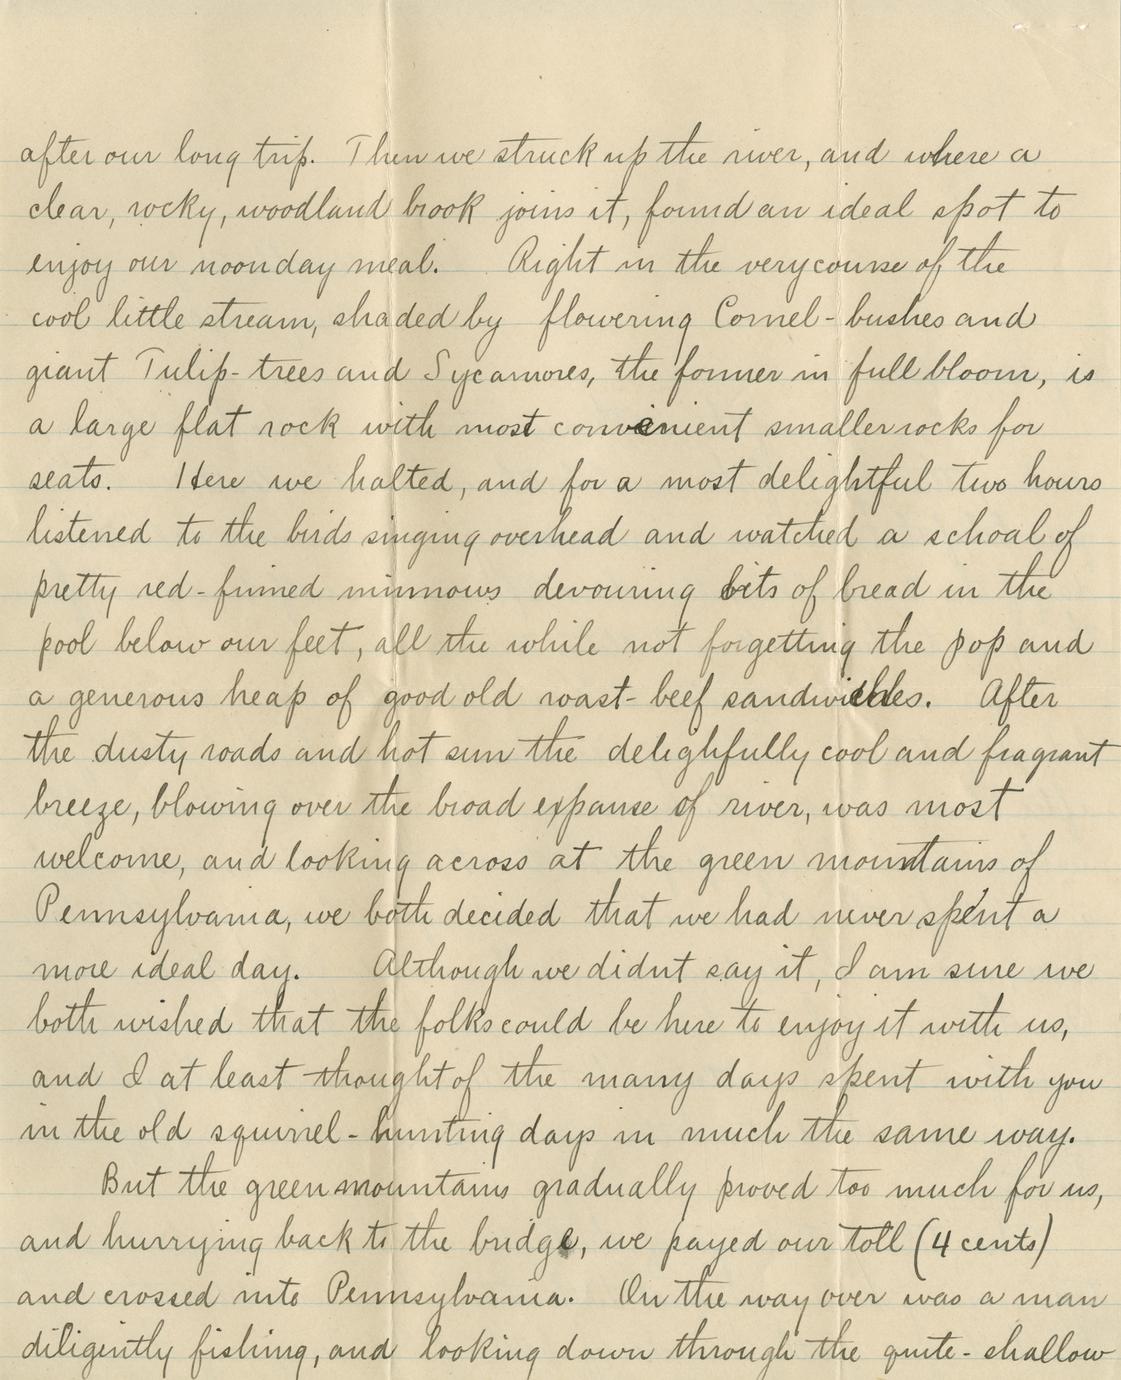 after our long trip. Then we struck up the river, and where a
clear, rocky, woodland brook joins it, found an ideal spot to
enjoy our noonday meal. Right in the very course of the
cool little stream, shaded by flowering Cornel-bushes and
giant Tulip-trees and Sycamores, the former in full bloom, is
a large flat rock with most convenient smaller rocks for
seats. Here we halted, and for a most delightful two hours
listened to the birds singing overhead and watched a school of
pretty red-finned minnows devouring bits of bread in the
pool below our feet, all the while not forgetting the pop and
a generous heap of good old roast-beef sandwiches. After
the dusty roads and hot sun the delighfully cool and fragrant
breeze, blowing over the broad expanse of river, was most
welcome, and looking across at the green mountains of
Pennsylvania, we both decided that we had never spent a
more ideal day. Although we didnt say it, I am sure we
both wished that the folks could be here to enjoy it with us,
and I at least thought of the many days spent with you
in the old squirrel-hunting days in much the same way.
But the green mountains gradually proved too much for us,
and hurrying back to the bridge, we payed our toll (4 cents)
and crossed into Pennsylvania. On the way over was a man
diligently fishing, and looking down through the quite-shallow